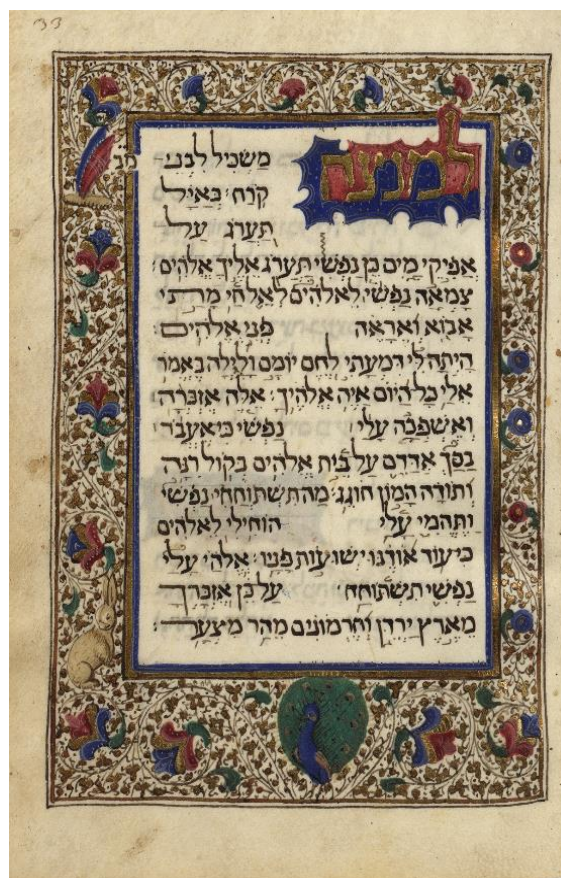 33
למנצח משכיל לבני
מב
קרח: כאיל
תערג על
אפיקי מים כן נפשי תערג אליך אלהים:
צמאה נפשי לאלהים לאל חי מתי
אבוא ואראה פני אלהים:
היתה לי דמעתי לחם יומם ולילה באמר
אלי כל היום איה אלהיך: אלה אזכרה
ואשפכה עלי נפשי כי אעבר
בסך אדדם על בית אלהים בקול רנה
ותודה המון חוגג: מה תשתוחחי נפשי
ותהמי עלי הוחילי לאלהים
כי עוד אודנו ישועות פניו: אלהי עלי
נפשי תשתוחח על כן אזכרך
מארץ ירדן וחרמונים מהר מצער: